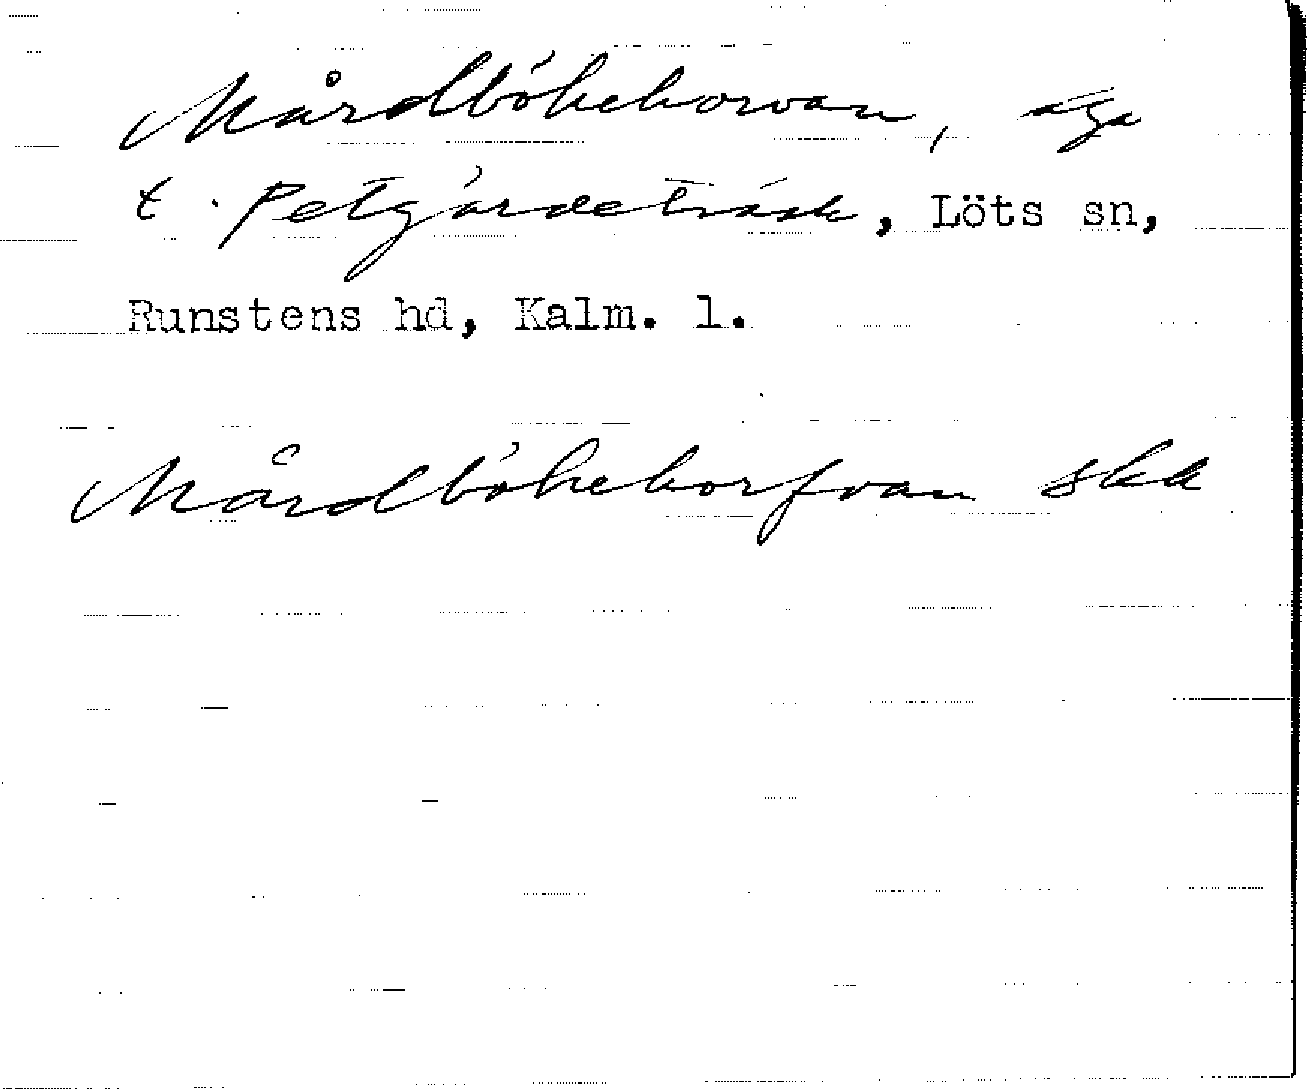 Mårdbökehorvan, äga
t. Petgärdeträsk, Löts sn,
Runstens hd, Kalm. l.
Mårdbökehorfvan ska